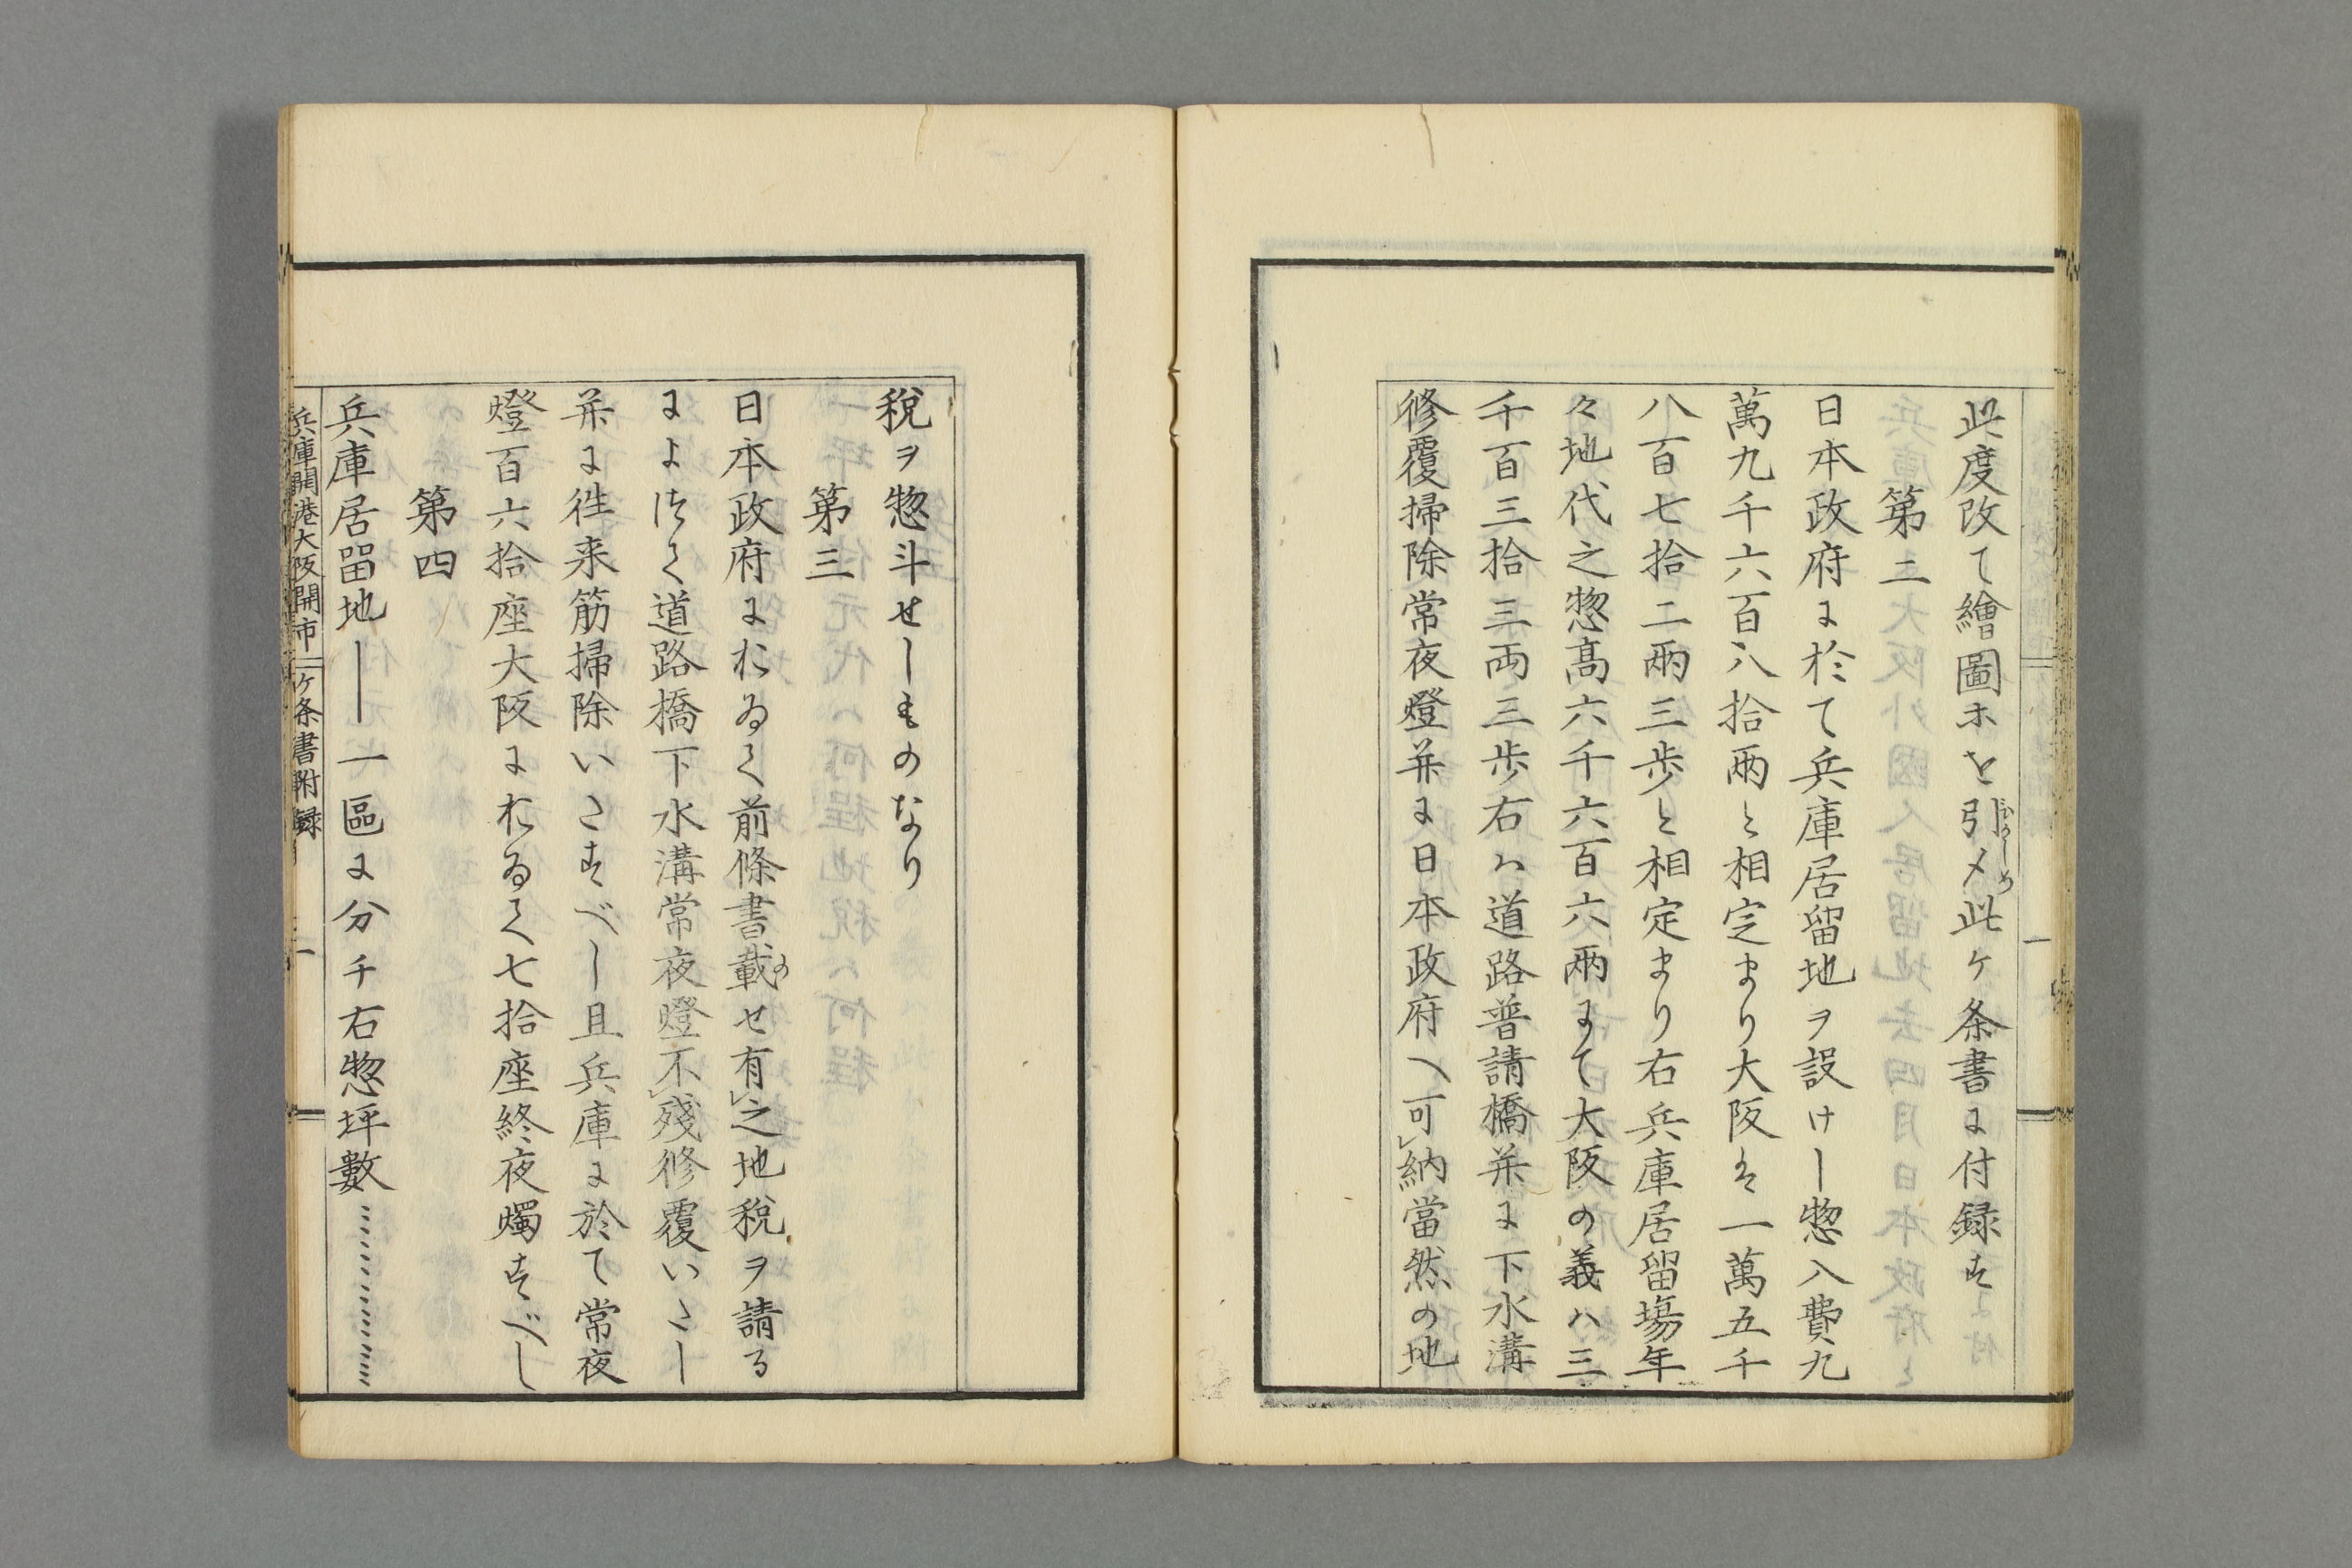 此度改て繪圖ホを引〆此ケ条書に付録す
第二
日本政府に於て兵庫居留地ヲ設けし惣入費九
萬九千六百八拾兩と相定まり大阪は一萬五千
八百七拾二兩三歩と相定まり右兵庫居留場年
々地代之惣髙六千六百六兩まて大阪の義ハ三
千百三拾三両三歩右ハ道路普請橋并に下水溝
修覆掃除常夜燈并に日本政府へ可レ納當然の地
税ヲ惣斗せしものなり
第三
日本政府におゐて前條書載せ有レ之地税ヲ請る
によつて道路橋下水溝常夜燈不レ殘修覆いたし
并に徃来筋掃除いたすべし且兵庫に於て常夜
燈百六拾座大阪におゐて七拾座終夜燭すべし
第四
兵庫居留地――一區に分チ右惣坪數
兵庫開港大阪開市ケ条書附録